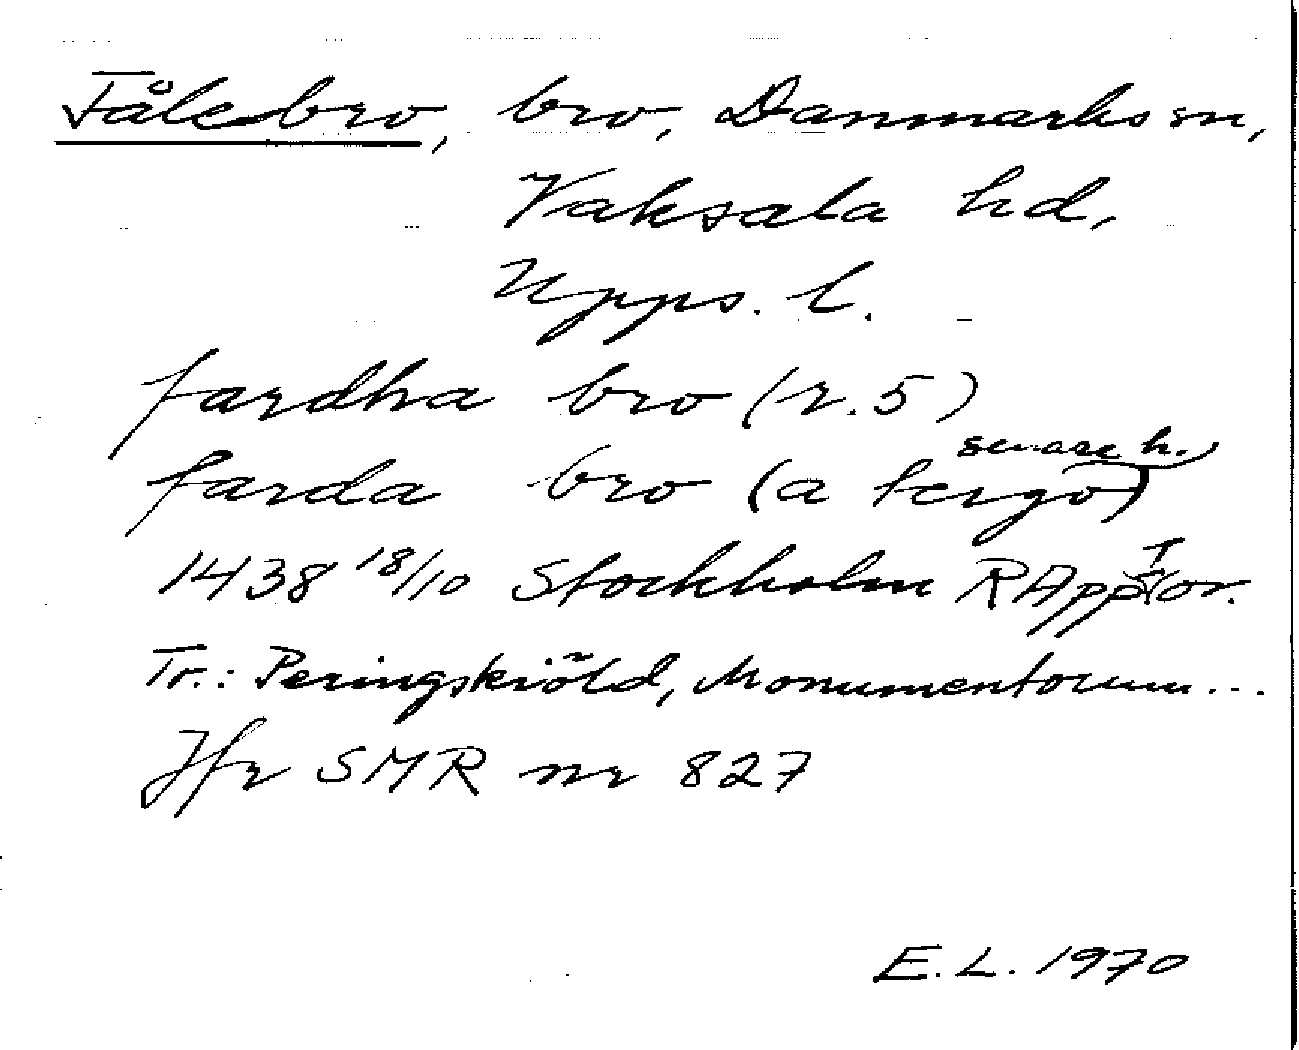 Fålebro, bro, Danmarks sn,
Vaksala hd,
Upps. l.
fardha bro (r. 5)
farda bro (a tergo, senare h.)
1438 18/10 Stockholm RApp or.
Tr.: Peringskiöld, Monumentorum...
Jfr SMR nr 827
E.L. 1970